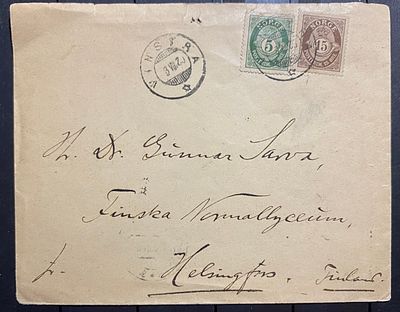 VINSTRA
NORGE
5
NORGE
15
Hr. Dr. Gunnar Sarva,
Finska Normallyceum,
Helsingfors. Finland.